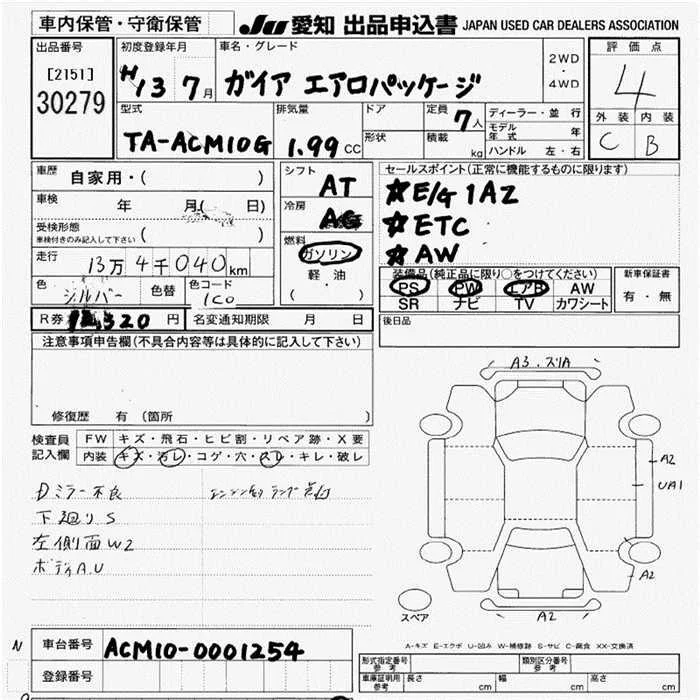 車内保管・守衛保管
JU 愛知 出品申込書 JAPAN USED CAR DEALERS ASSOCIATION
出品番号
[2151]
30279
初度登録年月
H13 7月
車名・グレード
ガイア エアロパッケージ
2WD
・
4WD
評価点
4
外装 内装
C B
型式
TA-ACM10G
排気量
1.99 CC
ドア
形状
定員
7人
積載
kg
ディーラー・並行
モデル年式 年
ハンドル 左・右
車歴 自家用・( )
車検 年 月( 日)
受検形態
車検付きのみ記入して下さい ( )
走行 13万4千040km
色 シルバー 色替 色コード 1C0
シフト AT
冷房 AC
燃料
ガソリン
軽・油
( )
セールスポイント(正常に機能するものに限ります)
☆E/G 1AZ
☆ETC
☆AW
装備品(純正品に限り○をつけてください)
PS PW エアB AW
SR ナビ TV カワシート
新車保証書
有・無
R券 320 円 名変通知期限 月 日
後日品
注意事項申告欄(不具合内容等は具体的に記入して下さい)
修復歴 有(箇所 )
検査員
記入欄
FW キズ・飛石・ヒビ割・リペア跡・X要
内装 キズ・汚レ・コゲ・穴・スレ・キレ・破レ
Dミラー不良 エンジン制ランプ点灯
下廻りS
左側面W2
ボディA.U
A3.スリA
A2
UA1
A2
A2
スペア
A-キズ E-エクボ U-凹み W-補修跡 S-サビ C-腐食 XX-交換済
N
車台番号 ACM10-0001254
登録番号
形式指定番号
参考
類別区分番号
参考
車庫証明用
参考
長さ cm 幅 cm 高さ cm